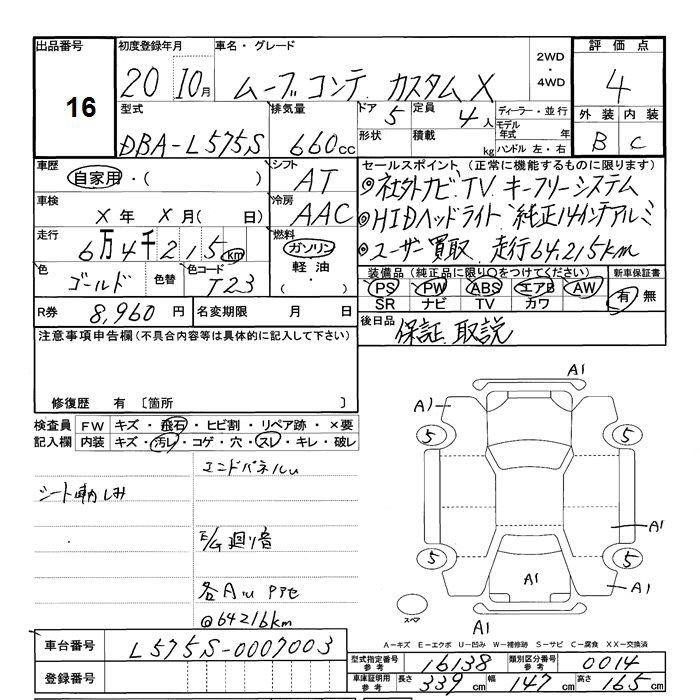 出品番号 初度登録年月 車名・グレード 評価点
16 20 10月 ムーブコンテ カスタムX 2WD・4WD 4
型式 排気量 ドア 5 定員 4人 ディーラー・並行 外装 内装
DBA-L575S 660cc 形状 積載 kg モデル年式 年 ハンドル 左・右 B C
車歴 シフト セールスポイント（正常に機能するものに限ります）
自家用・( ) AT ◎社外ナビ.TV キーフリーシステム
車検 冷房
X年 X月(日) AAC ◎HIDヘッドライト 純正14インチアルミ
走行 燃料
6万4千215km ガソリン ◎ユーザー買取 走行64,215km
色 色替 色コード 軽油 装備品（純正品に限り○をつけてください） 新車保証書
ゴールド T23 ・( ) PS PW ABS エアB AW 有 無
SR ナビ TV カワ
R券 8,960円 名変期限 月 日 後日品
保証.取説
注意事項申告欄(不具合内容等は具体的に記入して下さい)
修復歴 有 [箇所 ]
検査員記入欄 FW キズ・飛石・ヒビ割・リペア跡・×要
内装 キズ・汚レ・コゲ・穴・スレ・キレ・破レ
エンドパネルu
E/G廻り音
@64216km
A1
A1
5 5
A1
5 5
A1 A1
スペア
A1
A-キズ E-エクボ U-凹み W-補修跡 S-サビ C-腐食 XX-交換済
車台番号 L575S-0007003
型式指定番号参考 16138 類別区分番号参考 0014
登録番号
車庫証明用参考 長さ 339cm 幅 147cm 高さ 165cm